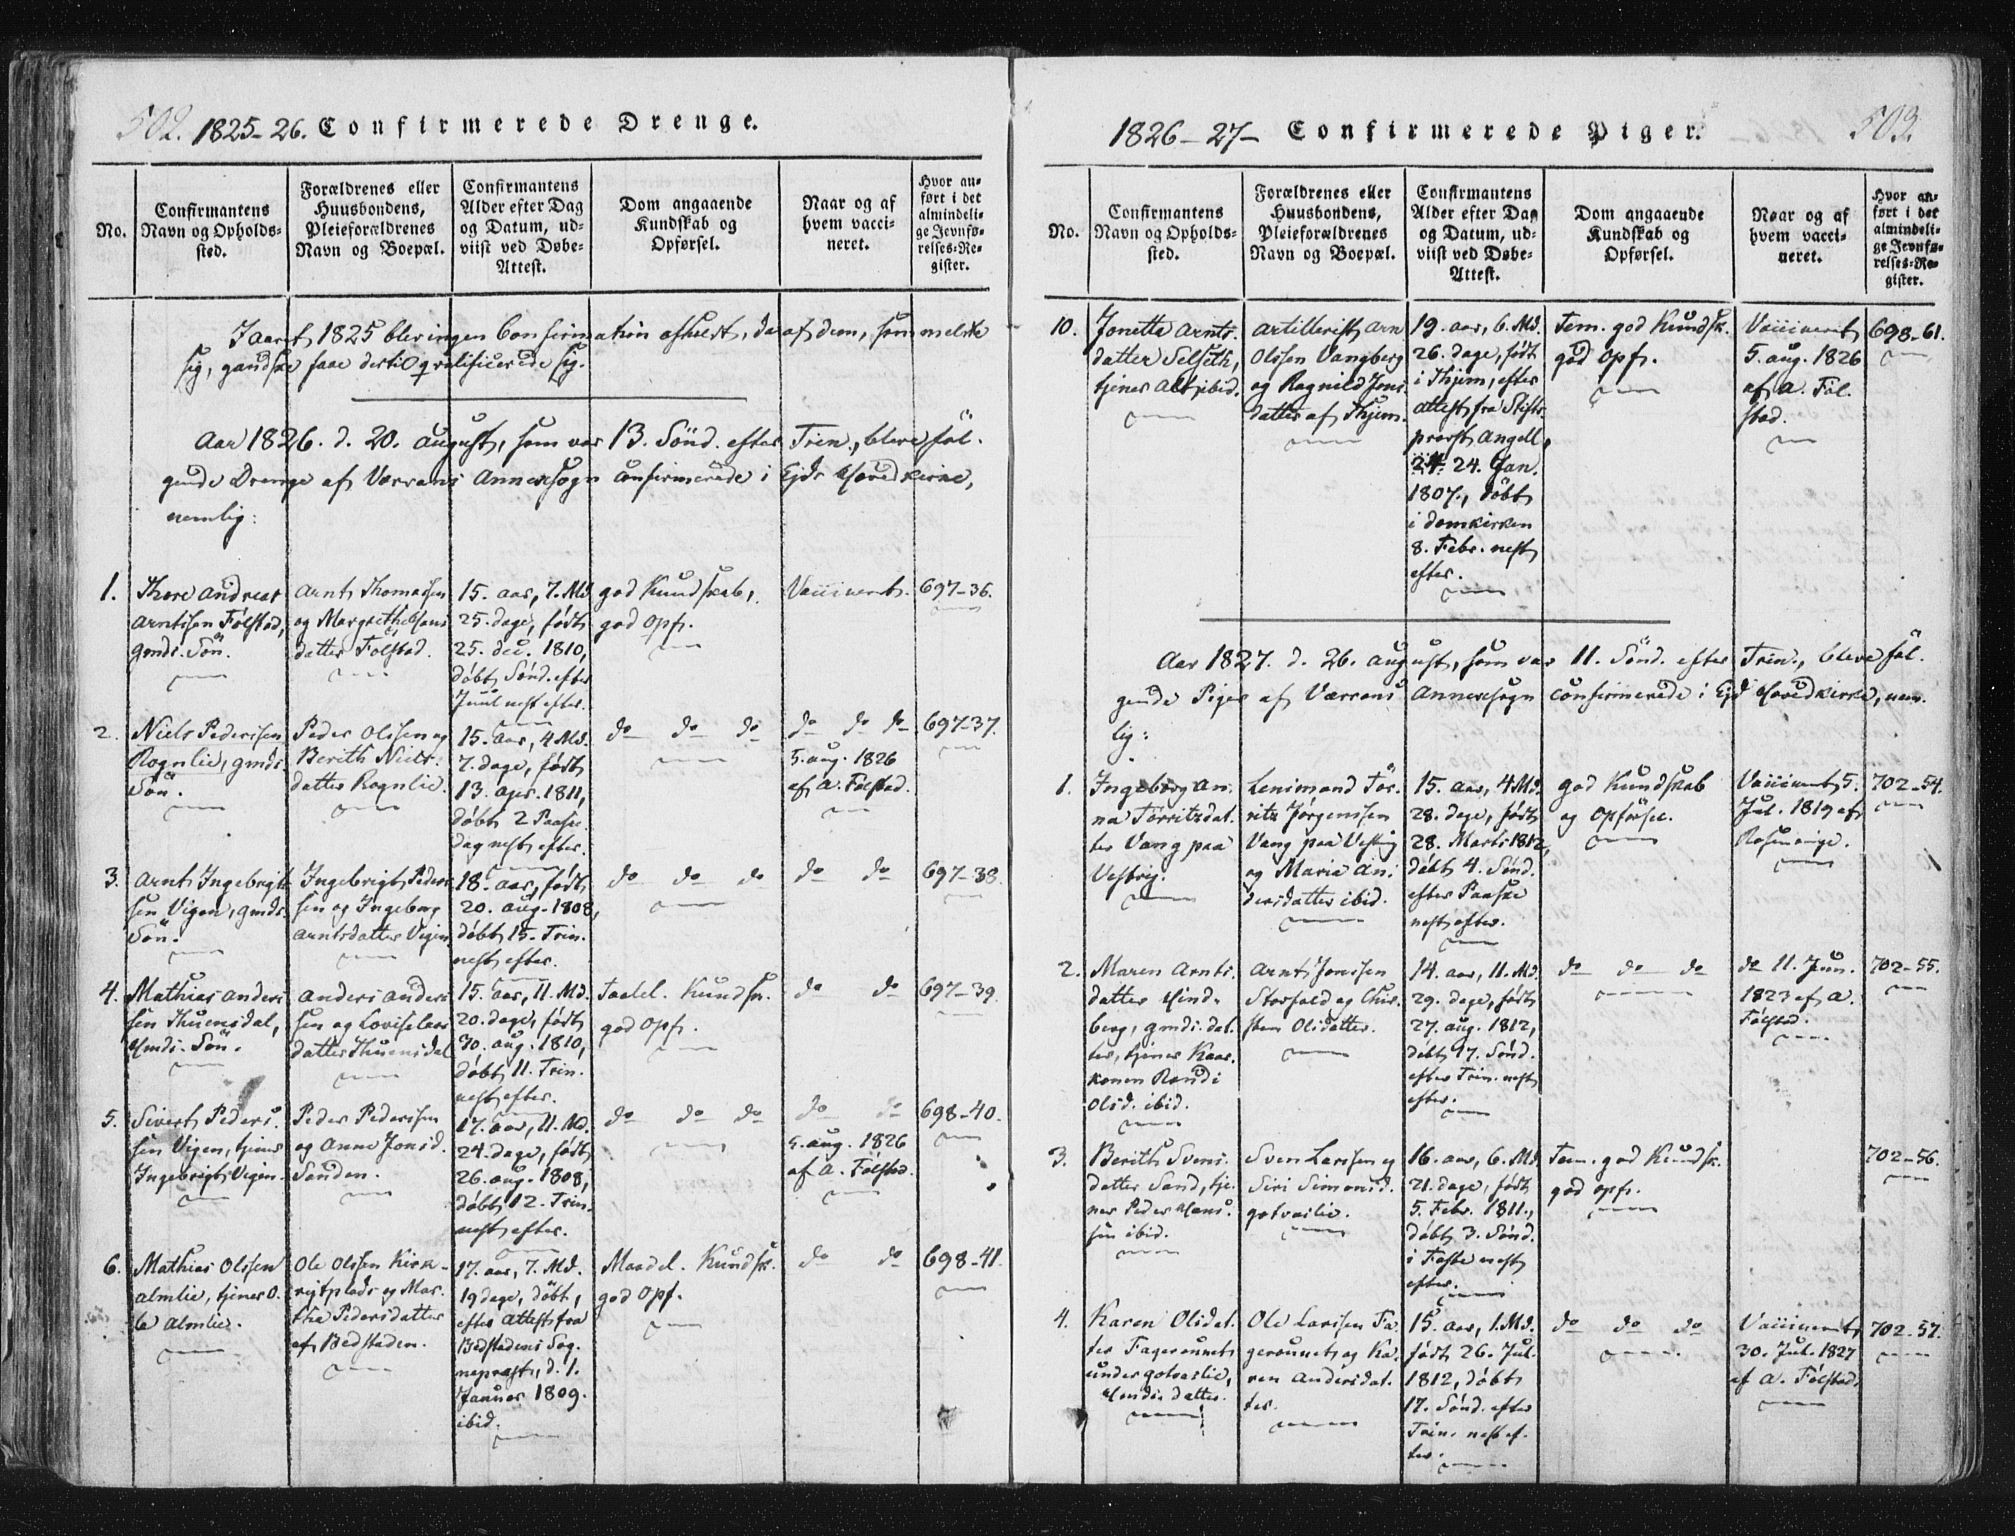 502. 1825-26. Confirmerede Drenge.
No.
Confirmantens
Navn og Opholds-
sted.
Forældrenes eller
Huusbondens,
Pleieforældrenes
Navn og Boepæl.
Confirmantens
Alder efter Dag
og Datum, ud-
viist ved Døbe-
Attest.
Dom angaaende
Kundskab og
Opførsel.
Naar og af
hvem vacci-
neret.
Hvor an-
ført i det
almindeli-
ge Jevnfø-
relses-Re-
gister.
I aaret 1825 blev ingen Confirmation afholdt, da af dem, som meldte
sig, gandske faae dertil qvalificerede sig.
Aar 1826. d. 20. august, som var 13. Sönd. efter Trin., bleve föl-
gende Drenge af Værrans Annexsogn confirmerede i Ejds Hovedkirke,
nemlig:
1.
Thore Andreas
Arntsen Følstad,
gmds. Sön.
Arnt Thomassen
og Margrethe Hans
datter Følstad.
15. aar, 7. Md.
25. dage, født
25. dec. 1810,
døbt Sönd. efter
Juul nest efter.
god Kundskab,
god Opf.
Vaccineret.
697-36.
2.
Niels Pedersen
Rognlie, gmds.
Sön.
Peder Olssen og
Berith Niels-
datter Rognlie.
15. aar, 4 Md.
7. dage, født
13. apr. 1811,
døbt 2 Paaske
dag nest efter.
do do do
do do do
5. aug. 1826
af A. Følstad.
697-37.
3.
Arnt Ingebrigt
sen Vigen, gmds.
Sön.
Ingebrigt Peder
sen og Ingeborg
Arntsdatter Vigen
18. aar, født
20. aug. 1808,
døbt 15. Trin.
nest efter.
do do do
do do
697-38.
4.
Mathias Anders
sen Thuensdal,
Hmds. Sön.
Anders Anders
sen og Lovise Lars
datter Thuensdal
15. aar, 11. Md.
20. dage, født
30. aug. 1810,
døbt 11. Trin.
nest efter.
Taalel. Kundsk.
god Opf.
do do
697-39.
5.
Sivert Peders-
sen Vigen, tjener
Ingebrigt Vigen.
Peder Pederssen
og Anne Jonsd.
Sanden.
17. aar, 11. Md.
24. dage, født
26. aug. 1808,
døbt 12. Trin.
nest efter.
do do do
do do
5. aug. 1826
af A. Følstad.
698-40.
6.
Mathias Olssen
Almlie, tjener O-
le Almlie.
Ole Olssen Kirk-
rigtplads og Mar-
tha Pedersdatter
af Bedstaden.
17. aar, 7. Md.
19 dage, døbt,
efter Attest fra
Bedstadens Sog-
neprest, d. 1.
Januar 1809.
ibid.
Maadel. Kundsk.
god Opf.
do do
698-41.
1826-27- Confirmerede Piger. 503.
No.
Confirmantens
Navn og Opholds-
sted.
Forældrenes eller
Huusbondens,
Pleieforældrenes
Navn og Boepæl.
Confirmantens
Alder efter Dag
og Datum, ud-
viist ved Døbe-
Attest.
Dom angaaende
Kundskab og
Opførsel.
Naar og af
hvem vacci-
neret.
Hvor an-
ført i det
almindeli-
ge Jevnfø-
relses-Re-
gister.
10.
Jonetta Arnts-
datter Selseth,
tjener ibid.
Artillerist Arn
Olssen Vangberg
og Ragnild Jons
datter af Thjem.
19. aar, 6. Md.
26. dage, født
i Thjem, efter
attest fra Stifts-
provst Angell,
24. Jan.
1807., døbt
i domkirken
8. Febr. nest
efter.
Tem. god Kundsk.
god Opf.
Vaccineret
5. aug. 1826
af A. Föl-
stad.
698-61.
Aar 1827. d. 26. august, som var 11. Sönd. efter Trin., bleve föl-
gende Piger af Værrans Annexsogn confirmerede i Ejds Hovedkirke, nem-
lig:
1.
Ingeborg An-
na Törritzdat-
ter Vang paa
Vestvig.
Lensmand Tör-
ritz Jørgenssen
Vang paa Vestvig
og Maria An-
dersdatter ibid.
15. aar, 4 Md.
28. dage, født
28. Marts 1812,
døbt 4. Sönd.
efter Paaske
nest efter.
god Kundskab
og Opførsel.
Vaccineret 5.
Jul. 1819 af
Rosenvige.
702-54.
2.
Maren Arnts-
datter Hind-
berg, gmds. dat-
ter, tjener Kaar-
konen Randi
Olsd. ibid.
Arnt Jonssen
Storfald og Chir-
sten Olsdatter.
14. aar, 11. Md.
29. dage, født
27. aug. 1812,
døbt 17. Sönd.
efter Trin. nest
efter.
do do do
do 11. Jun.
1823 af A.
Følstad.
702-55.
3.
Berith Svens-
datter Sand, tje-
ner Peder Hans-
sen ibid.
Sven Larssen og
Siri Simonsd.
Gotvaslie.
16. aar, 6. Md.
21. dage, født
5. Febr. 1811.,
døbt 3. Sönd.
i Faste nest
efter.
Tem. god Kundsk.
god Opf.
702-56.
4.
Karen Olsdat-
ter Fagerønnet
under Gotvaslie,
Hmds. datter.
Ole Larssen Fa-
gerønnet og Ka-
ren Andersdat-
ter.
15. aar, 1. Md.
født 26. Jul.
1812, døbt
17. Sönd. efter
Trin. nest ef-
ter.
do do do
Vaccineret
30. Jul. 1827
af A. Følstad.
702-57.